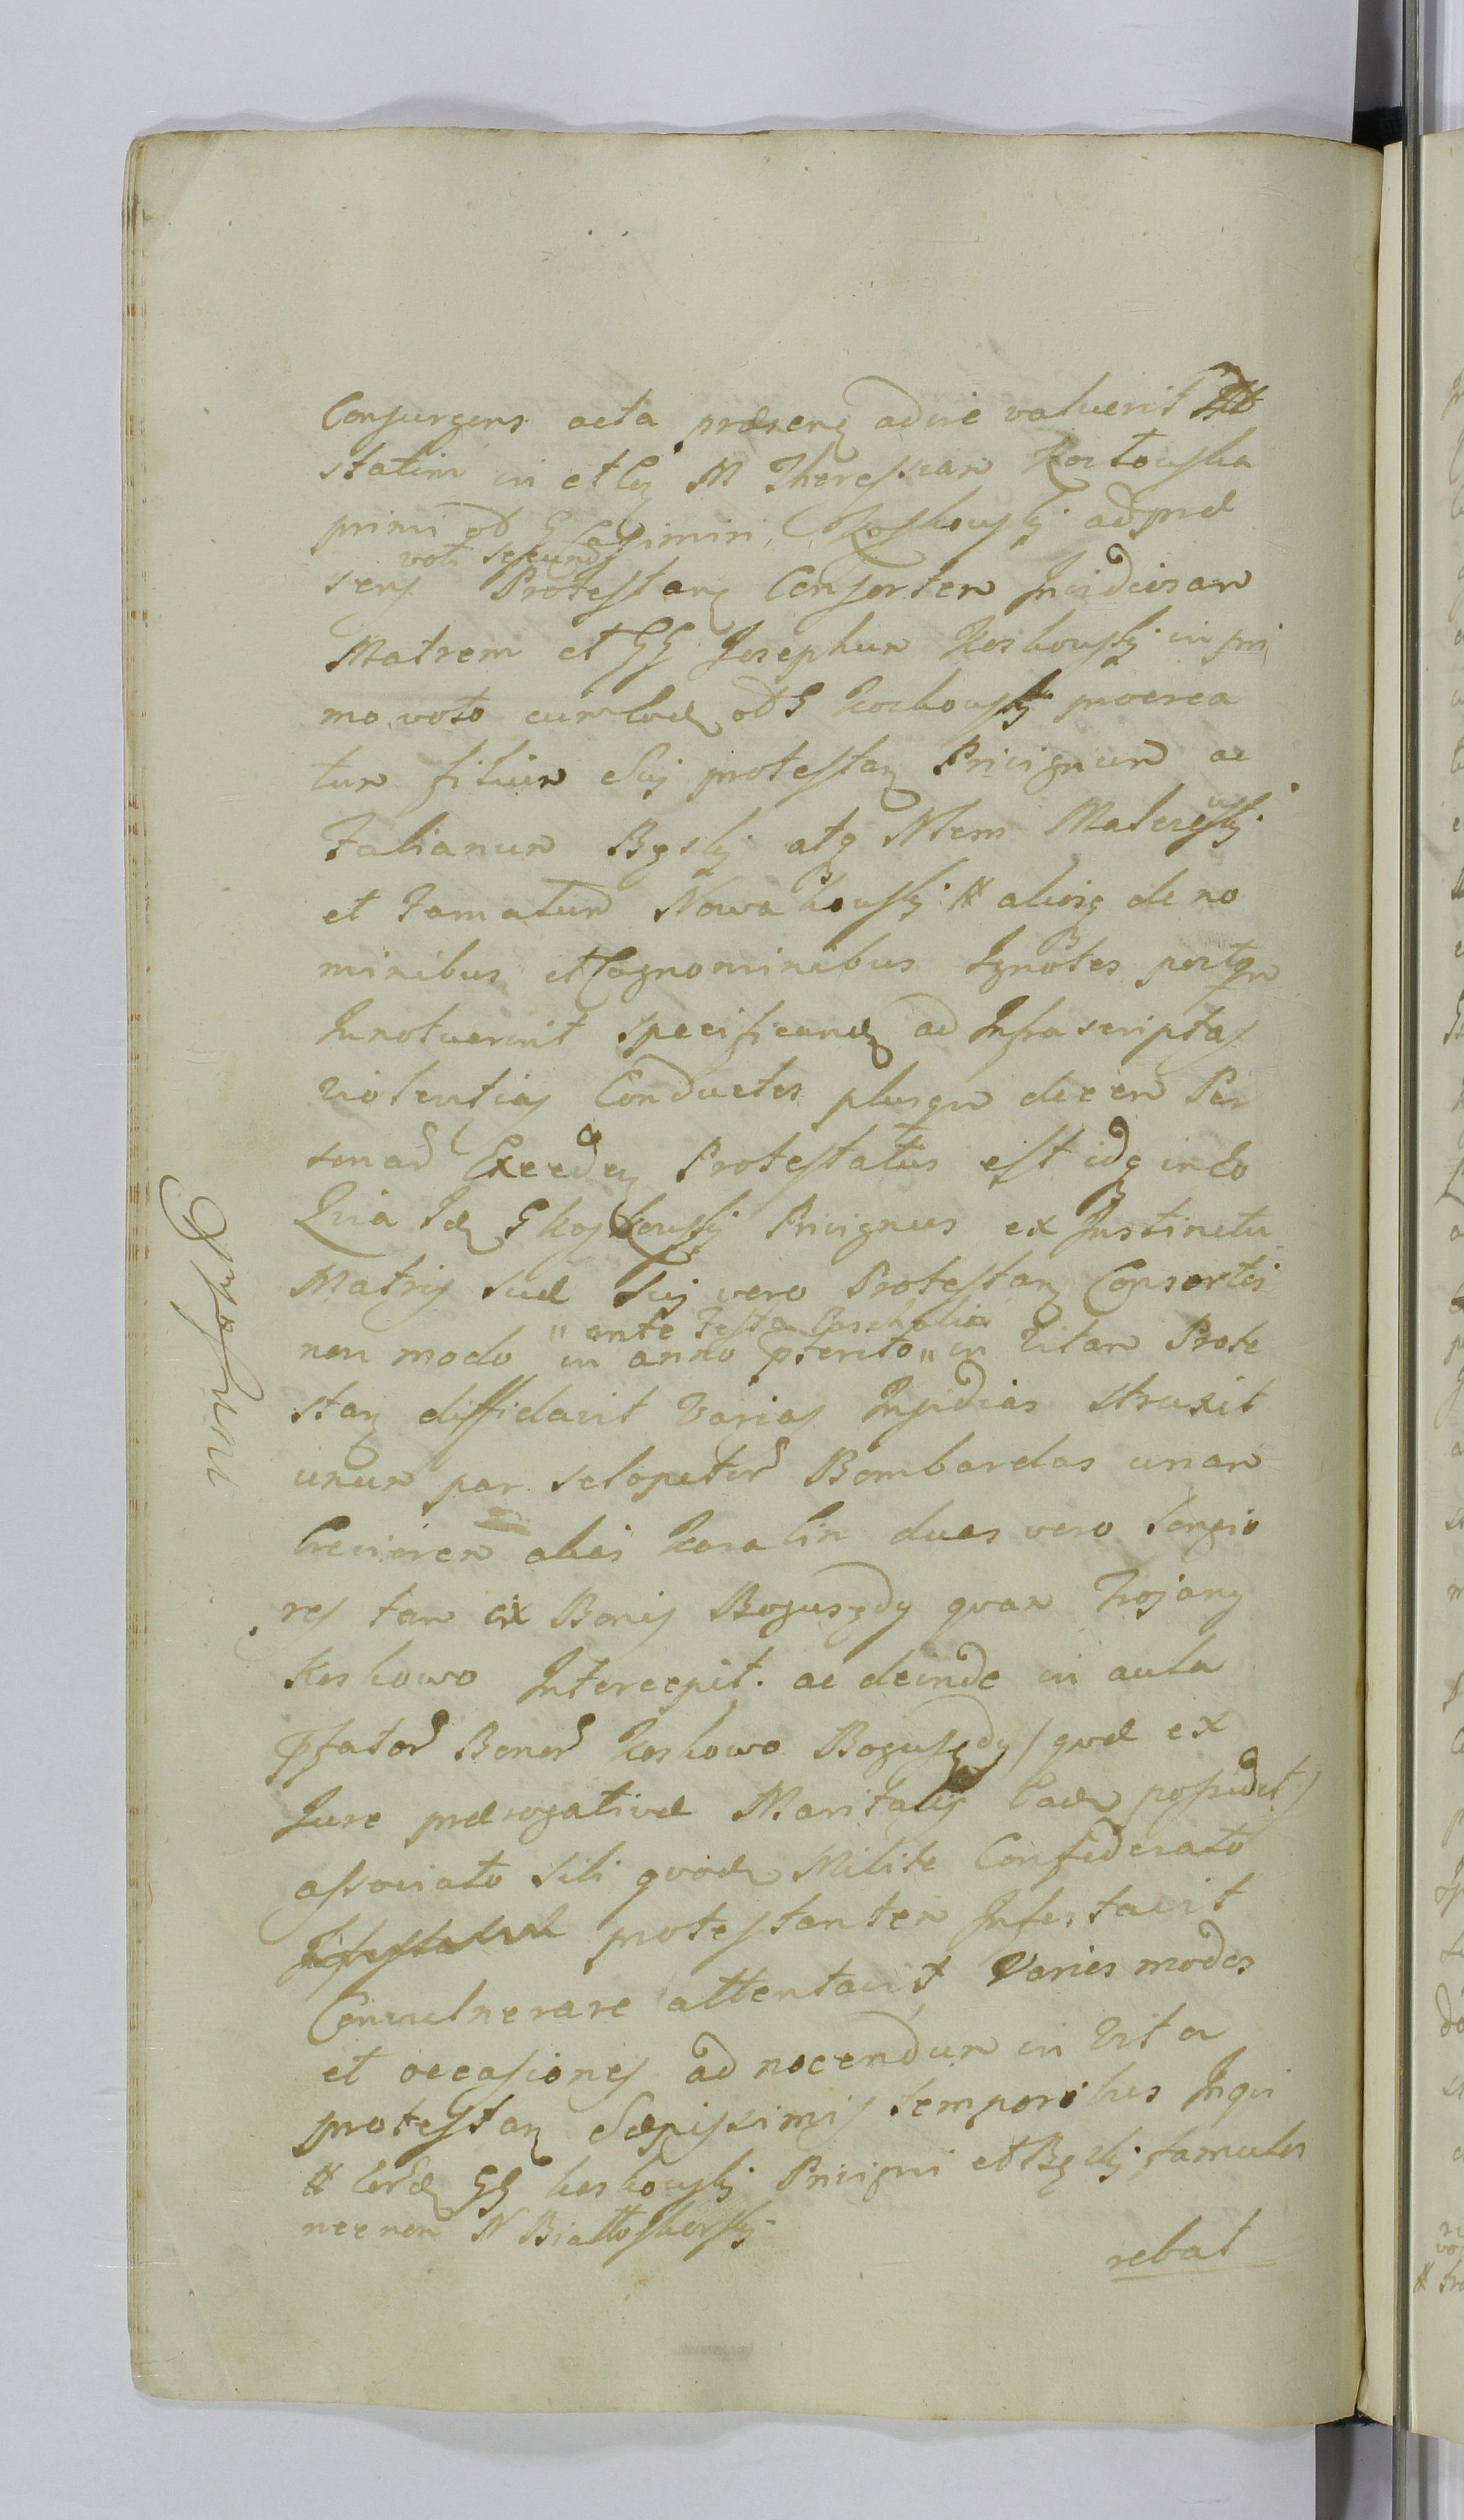 Consurgens acta præsens adire valuerit
statim in et cg M Theressiam Kortowska
primi olð G Casimiri Koskowskj ad præ
voti secundj
sens Protestans Consortem Insidiosam
Matrem et GG Josephum Koskowskj in pri
mo voto cum olð G Koskowskj procrea
tum filium Sui protestans Privignum ac
Falianum Bgskj atq Nlem Maleiewskj
et Famatum Nowakowskj # aliosq de no
minibus et Cognominibus Ignotos postqm
Innotuerint specificandos ad Infrascriptas
violentias Conductos plusqm decem Per
sonar Exceden Protestatus est idq in Eo
Quia Id G Koskowskj Privignus ex Instinctu
Matris suæ Sui vero Protestan Consortis
" ante Festa Paschalia
non modo in anno pterito " in Vitam Prote
stan diffidavit Varias Insidias struxit
unum par sclopetor Bombardas unam
breviorem alias Karabin duas vero longio
res tam ex Bonis Boguszdy quam Trojany
Koskowo Intercepit. ac deinde in aula
Pfator Bonor Koskowo Boguszdy / quæ ex
Jure prærogativæ Maritalis Eadem possidet /
associato sibi quodam Milite Confederato
protestantem Infestavit
Convulnerare attentavit Varios modos
et occasiones ad nocendum in Vita
protestan Sæpissimis temporibus Inqui
# Eord GG Koskowskj Privigni et Bgskj famulos
necnon N Białłoskorskj
rebat